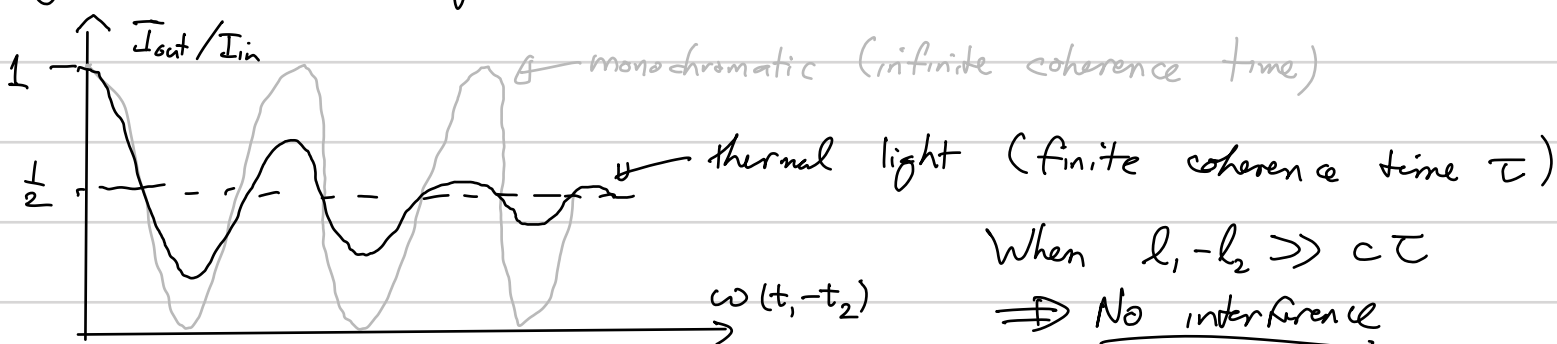 I_out / I_in
1
monochromatic (infinite coherence time)
thermal light (finite coherence time τ)
1/2
When l₁-l₂ >> cτ
ω(t₁-t₂)
⇒ No interference